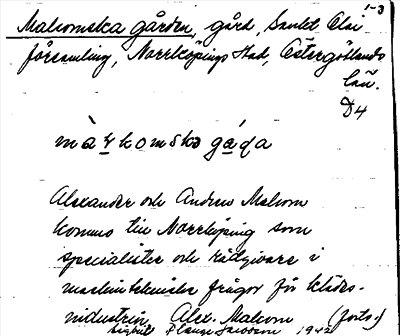 1-3
Malcomska gården, gård, Sankt Olai
församling, Norrköpings stad, Östergötlands
län.
D4
màlkomska gáḍa
Alexander och Andrew Malcom
kommo till Norrköping som
specialister och rådgivare i
maskintekniska frågor för klädes-
industrin. Alex. Malcom (forts.)
Sigbrit Plaenge Jacobson 1942